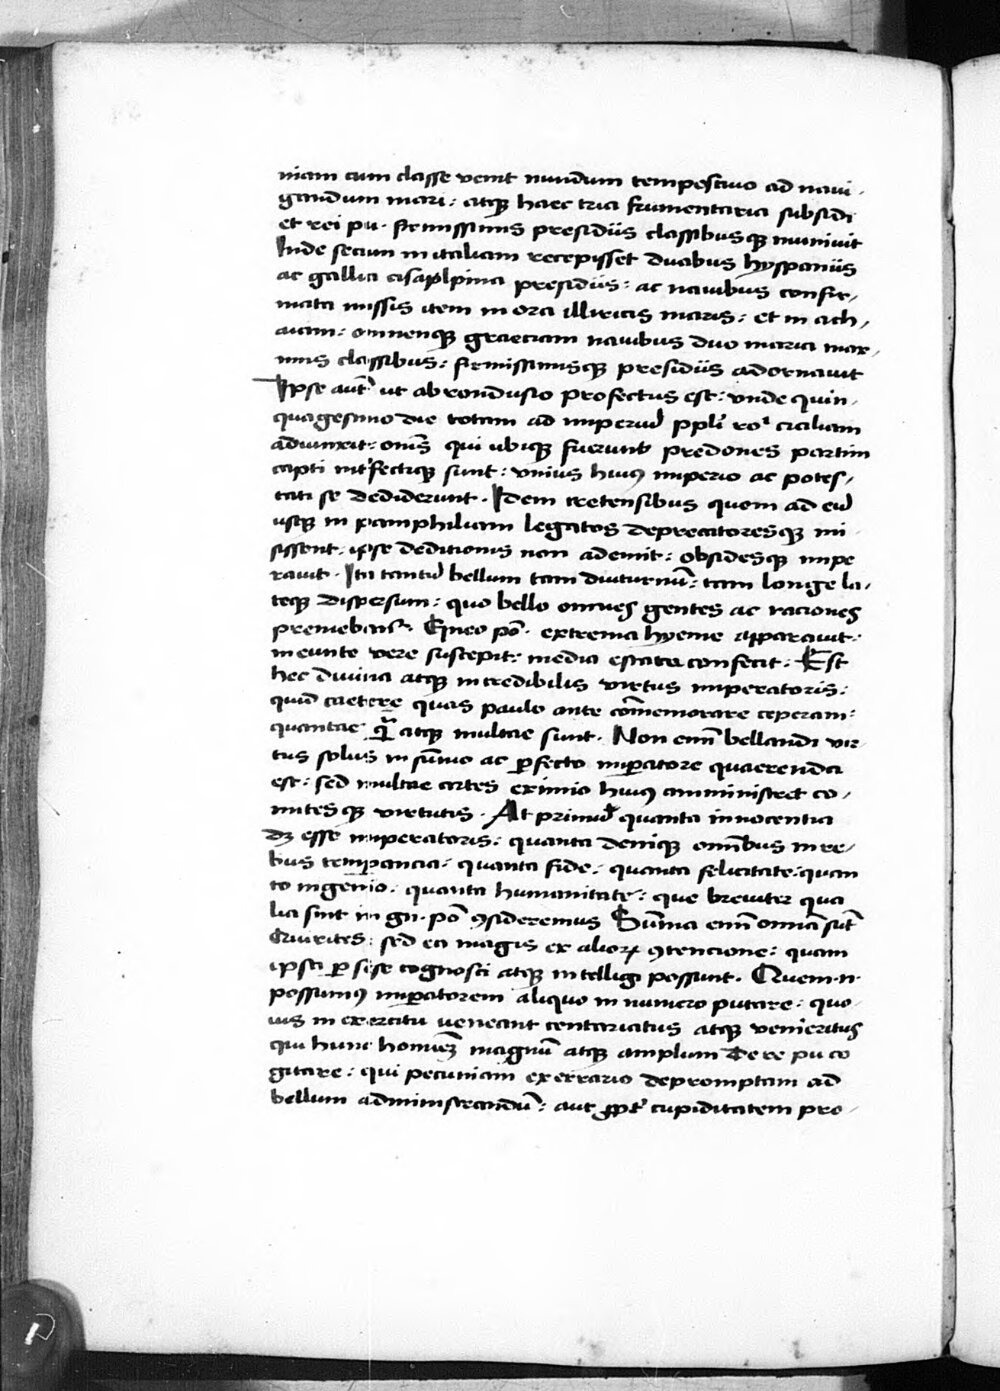 niam cum classe venit nundum tempestiuo ad naui-
gandum mari: atqꝫ haec tria frumentaria subsidi
et rei pu. firmissimis presidiis classibusqꝫ muniuit
Inde secum in italiam recepisset duabus hyspaniis
ac gallia cisaplpina presidiis: ac nauibus confir-
mata missis item in ora illiricis maris: et in ach-
aiam: omnenqꝫ graeciam nauibus duo maria max-
imis classibus: firmissimisqꝫ presidiis adornauit
Ipse aut̄ ut abrondusio profectus est: vnde quin-
quagesimo die totam ad imperiū ppli ro. ciciliam
adiunxit: om̄s qui ubiqꝫ fuerunt predones partim
capti int̓fectiqꝫ sunt: vnius huiꝰ imperio ac potes-
tati se dediderunt. Idem cretensibus quom ad eū
usqꝫ in pamphiliam legatos deprecatoresqꝫ mi
sissent. ipse deditionis non ademit: obsidesqꝫ impe
rauit. Ita tantū bellum tam diuturnū: tam longe la-
teqꝫ dispersum: quo bello omnes gentes ac raciones
premebanť. Gneo pō. extrema hyeme apparauit:
ineunte vere suscepit: media estate confecit: Est
hec diuina atqꝫ incredibilis virtus imperatoris:
quid caetere quas paulo ante cōmemorare ceperam:
quantae q̄ atqꝫ multae sunt. Non enī bellandi vir-
tus solus in sūmo ac ꝑfecto imꝑatore quaerenda
est: sed multae artes eximio huiꝰ amministret co-
mitesqꝫ virtutis. At primū quanta innocentia
dꝫ esse imperatoris: quanta deniqꝫ omībus in re-
bus temꝑancia: quanta fide: quanta felicitate: quan
to ingenio: quanta humanitate: que breuiter qua
lia sint in gn. pō ꝯsideremus Sūma enī omnia sūt
Quirites: sed ea magis ex alioꝝ ꝯtencione: quam
ipsa ꝑ se se cognosci atqꝫ intelligi possunt. Quem .n.
possumꝰ imꝑatorem aliquo in numero putare: quo-
ius in exercitu veneant centuriatus atqꝫ venieritus
qui hunc homiēꝫ magnū atqꝫ amplum de re pu co
gitare: qui pecuniam ex errario depromptam ad
bellum administrandū: aut ꝓpt̓ cupiditatem pro-